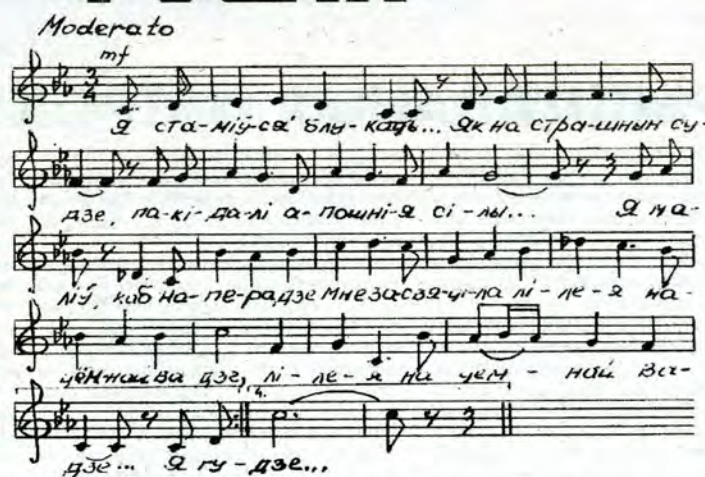 Moderato
mf
Я ста-міў-ся блу-каць... Як на стра-шным су-
дзе, па-кі-да-лі а-пошні-я сі-лы... Я ма-
ліў, каб на-пе-радзе мне засвя-ці-ла лі-ле-я на
цёмнай ва дзе, лі-ле-я на цем-най ва-
4.
дзе... Я гу-дзе...